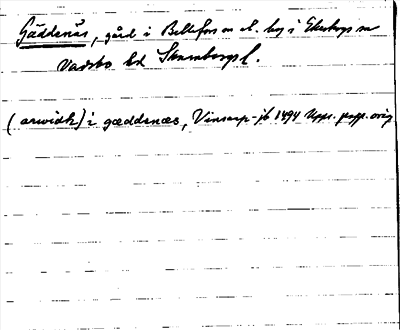 Gäddenäs, gård i Bellefors sn el. by i Ekeskogs sn
Vadsbo hd Skaraborgs l.
(arwidh) i gæddenæs, Vinsarp-jb 1494 Upps. papp. orig